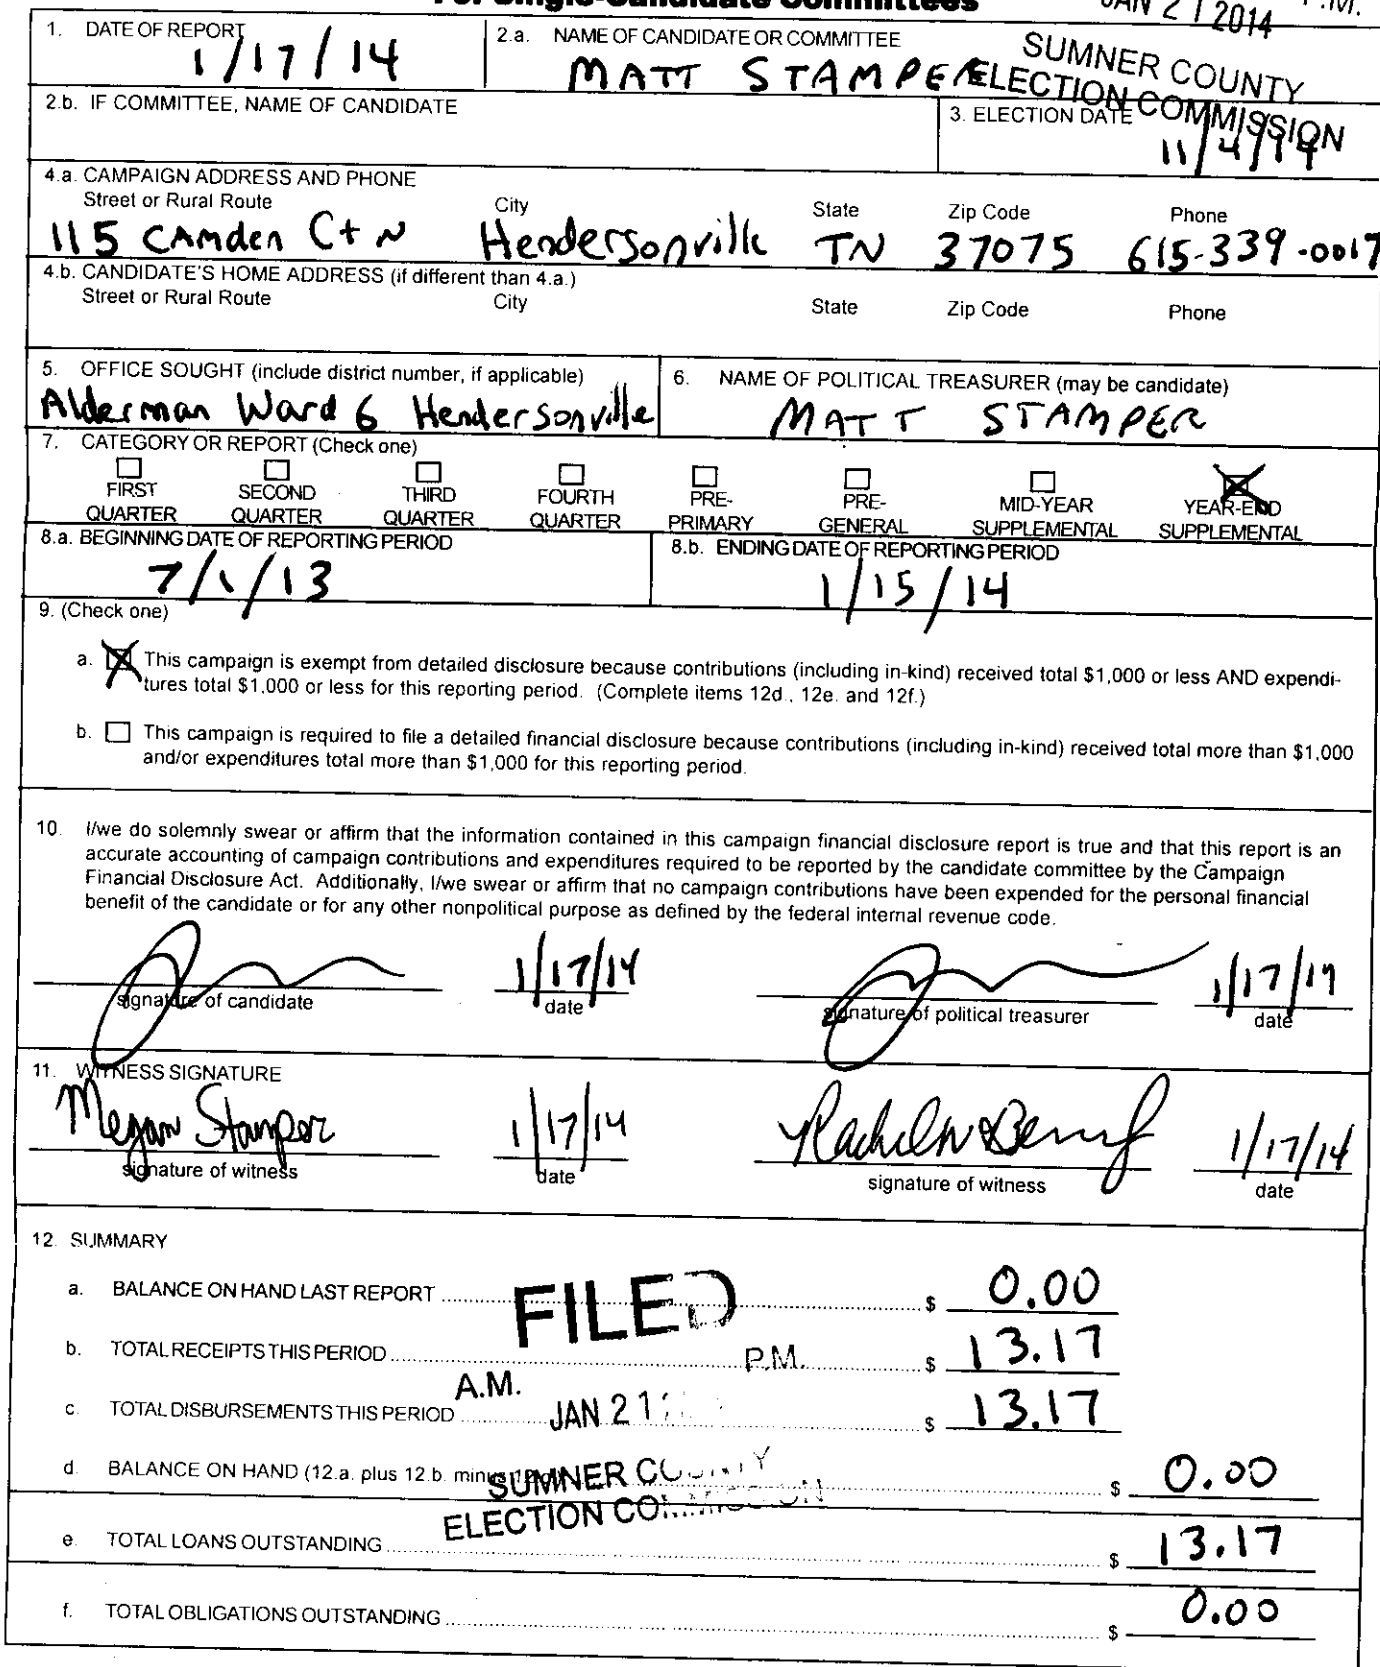 For Single-Candidate Committees
JAN 21 2014 P.M.
SUMNER COUNTY
ELECTION COMMISSION
1. DATE OF REPORT
1/17/14
2.a. NAME OF CANDIDATE OR COMMITTEE
MATT STAMPER
2.b. IF COMMITTEE, NAME OF CANDIDATE
3. ELECTION DATE
11/4/14
4.a. CAMPAIGN ADDRESS AND PHONE
Street or Rural Route City State Zip Code Phone
115 CAmden Ct N Hendersonville TN 37075 615-339-0017
4.b. CANDIDATE'S HOME ADDRESS (if different than 4.a.)
Street or Rural Route City State Zip Code Phone
5. OFFICE SOUGHT (include district number, if applicable)
Alderman Ward 6 Hendersonville
6. NAME OF POLITICAL TREASURER (may be candidate)
MATT STAMPER
7. CATEGORY OR REPORT (Check one)
FIRST QUARTER
SECOND QUARTER
THIRD QUARTER
FOURTH QUARTER
PRE-PRIMARY
PRE-GENERAL
MID-YEAR SUPPLEMENTAL
YEAR-END SUPPLEMENTAL
8.a. BEGINNING DATE OF REPORTING PERIOD
7/1/13
8.b. ENDING DATE OF REPORTING PERIOD
1/15/14
9. (Check one)
a. This campaign is exempt from detailed disclosure because contributions (including in-kind) received total $1,000 or less AND expendi-
tures total $1,000 or less for this reporting period. (Complete items 12d., 12e. and 12f.)
b. This campaign is required to file a detailed financial disclosure because contributions (including in-kind) received total more than $1,000
and/or expenditures total more than $1,000 for this reporting period.
10. I/we do solemnly swear or affirm that the information contained in this campaign financial disclosure report is true and that this report is an
accurate accounting of campaign contributions and expenditures required to be reported by the candidate committee by the Campaign
Financial Disclosure Act. Additionally, I/we swear or affirm that no campaign contributions have been expended for the personal financial
benefit of the candidate or for any other nonpolitical purpose as defined by the federal internal revenue code.
1/17/14 1/17/14
signature of candidate date signature of political treasurer date
11. WITNESS SIGNATURE
Megan Stamper 1/17/14 1/17/14
signature of witness date signature of witness date
12. SUMMARY
a. BALANCE ON HAND LAST REPORT $ 0.00
FILED
b. TOTAL RECEIPTS THIS PERIOD $ 13.17
A.M. P.M.
c. TOTAL DISBURSEMENTS THIS PERIOD $ 13.17
JAN 21
d. BALANCE ON HAND (12.a. plus 12.b. minus $ 0.00
SUMNER COUNTY
ELECTION COMMISSION
e. TOTAL LOANS OUTSTANDING $ 13.17
f. TOTAL OBLIGATIONS OUTSTANDING $ 0.00